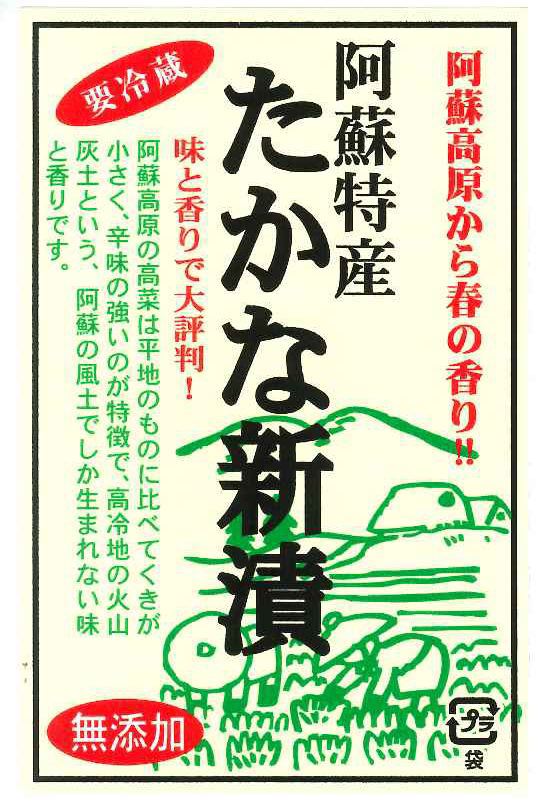 阿蘇高原から春の香り!!
阿蘇特産
たかな新漬
要冷蔵
味と香りで大評判！
阿蘇高原の高菜は平地のものに比べてくきが
小さく、辛味の強いのが特徴で、高冷地の火山
灰土という、阿蘇の風土でしか生まれない味
と香りです。
無添加
プラ
袋